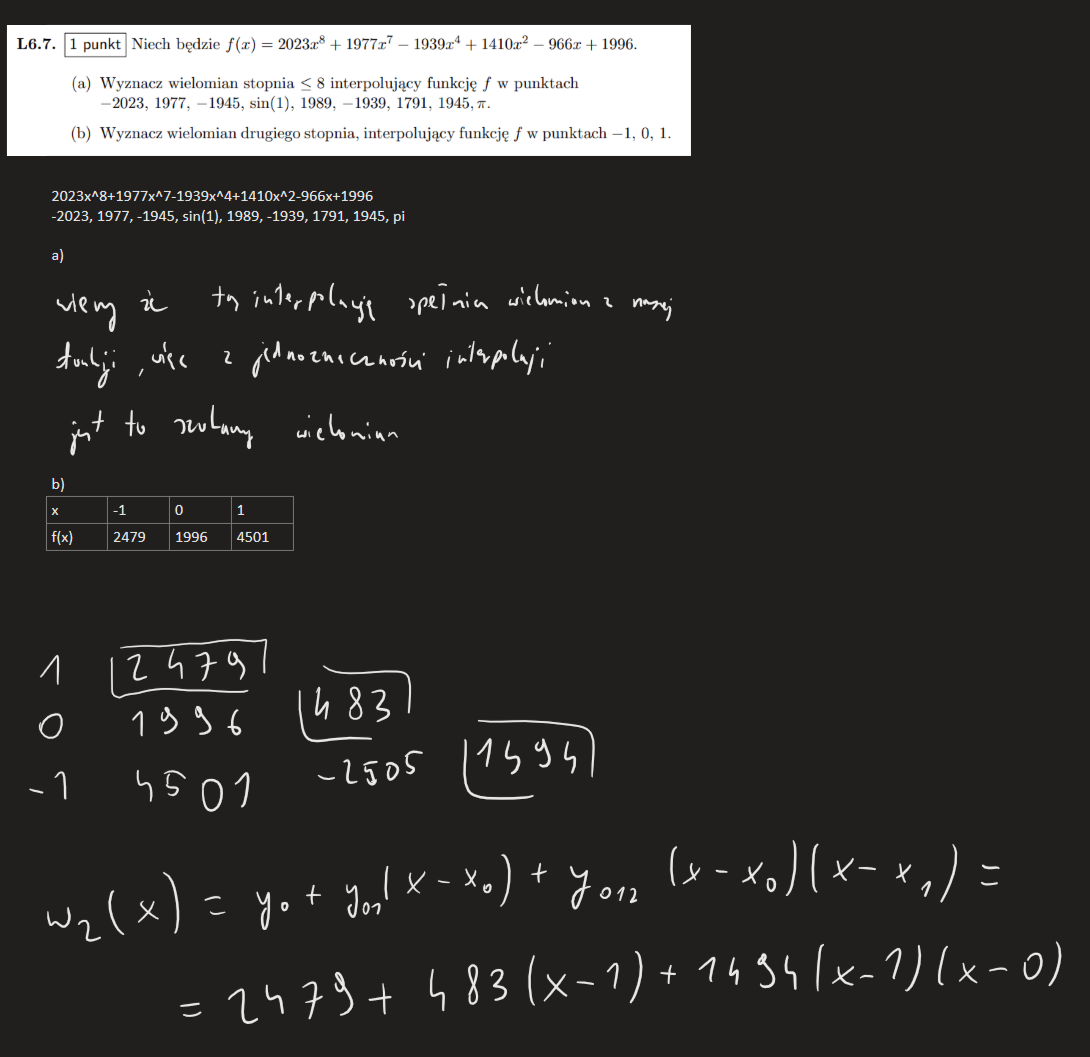 L6.7. 1 punkt Niech będzie f(x) = 2023x⁸ + 1977x⁷ − 1939x⁴ + 1410x² − 966x + 1996.
(a) Wyznacz wielomian stopnia ≤ 8 interpolujący funkcję f w punktach
−2023, 1977, −1945, sin(1), 1989, −1939, 1791, 1945, π.
(b) Wyznacz wielomian drugiego stopnia, interpolujący funkcję f w punktach −1, 0, 1.
2023x^8+1977x^7-1939x^4+1410x^2-966x+1996
-2023, 1977, -1945, sin(1), 1989, -1939, 1791, 1945, pi
a)
wiemy że tą interpolację spełnia wielomian z naszej
funkcji, więc z jednoznaczności interpolacji
jest to szukany wielomian
b)
x -1 0 1
f(x) 2479 1996 4501
1 2479
483
0 1996
1494
-2505
-1 4501
w₂(x) = y₀ + y₀₁(x - x₀) + y₀₁₂ (x - x₀)(x - x₁) =
= 2479 + 483(x-1) + 1494(x-1)(x-0)